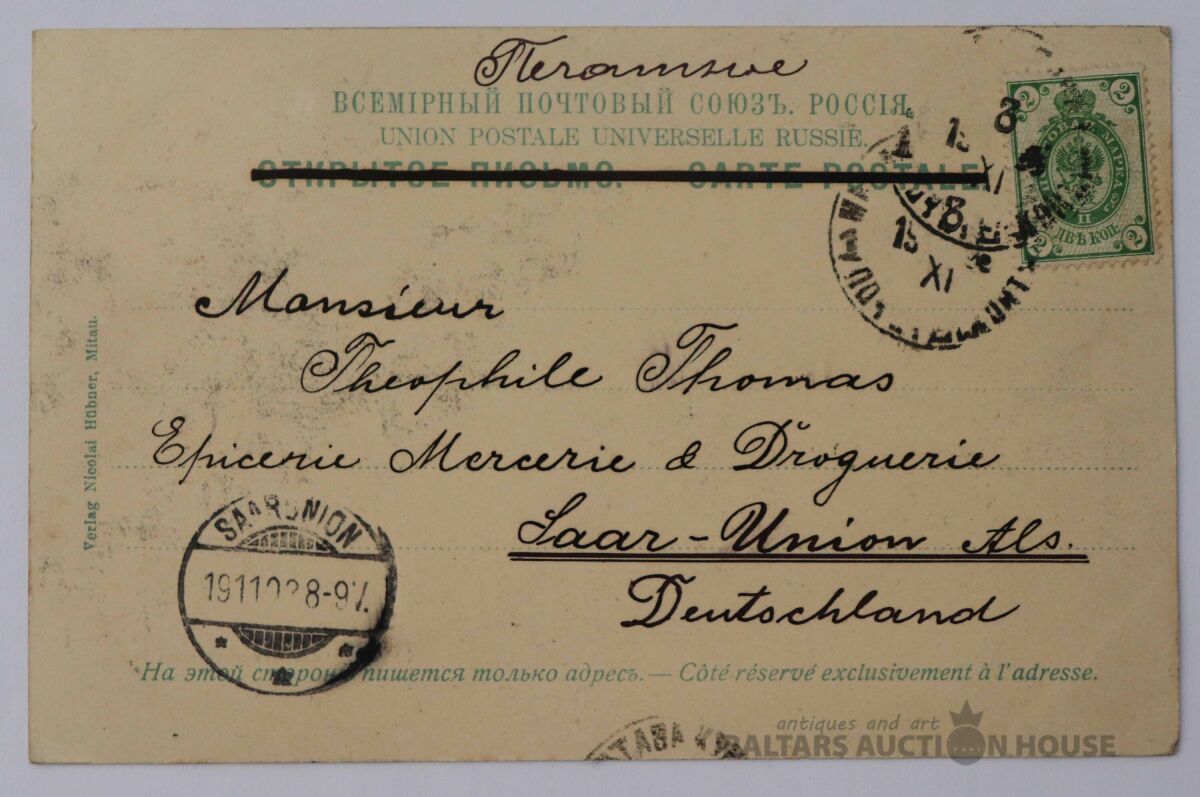 Печатное
ВСЕМІРНЫЙ ПОЧТОВЫЙ СОЮЗЪ. РОССІЯ.
UNION POSTALE UNIVERSELLE RUSSIE.
ОТКРЫТОЕ ПИСЬМО. — CARTE POSTALE
2 2
ПОЧТОВАЯ МАРКА
ДВѢ КОП.
2 2
15
XI
8
15
XI
Monsieur
Theophile Thomas
Epicerie Mercerie & Droguerie
Saar-Union Als.
Deutschland
Verlag Nicolai Hübner, Mitau.
SAARUNION
8-9V.
На этой сторонѣ пишется только адресъ. — Côté réservé exclusivement à l'adresse.
МИТАВА
antiques and art
BALTARS AUCTION HOUSE